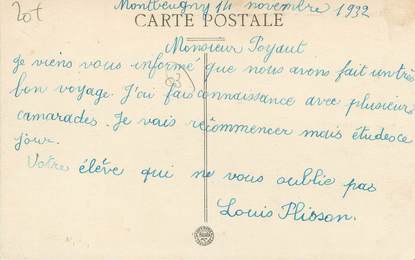 20t
Montbeugny 14 novembre 1932
CARTE POSTALE
Monsieur Poyaut
Je viens vous informé que nous avons fait un très
bon voyage. J'ai fais connaissance avec plusieurs
camarades. Je vais recommencer mais études ce
jour.
Votre élève qui ne vous oublie pas
Louis Plisson.